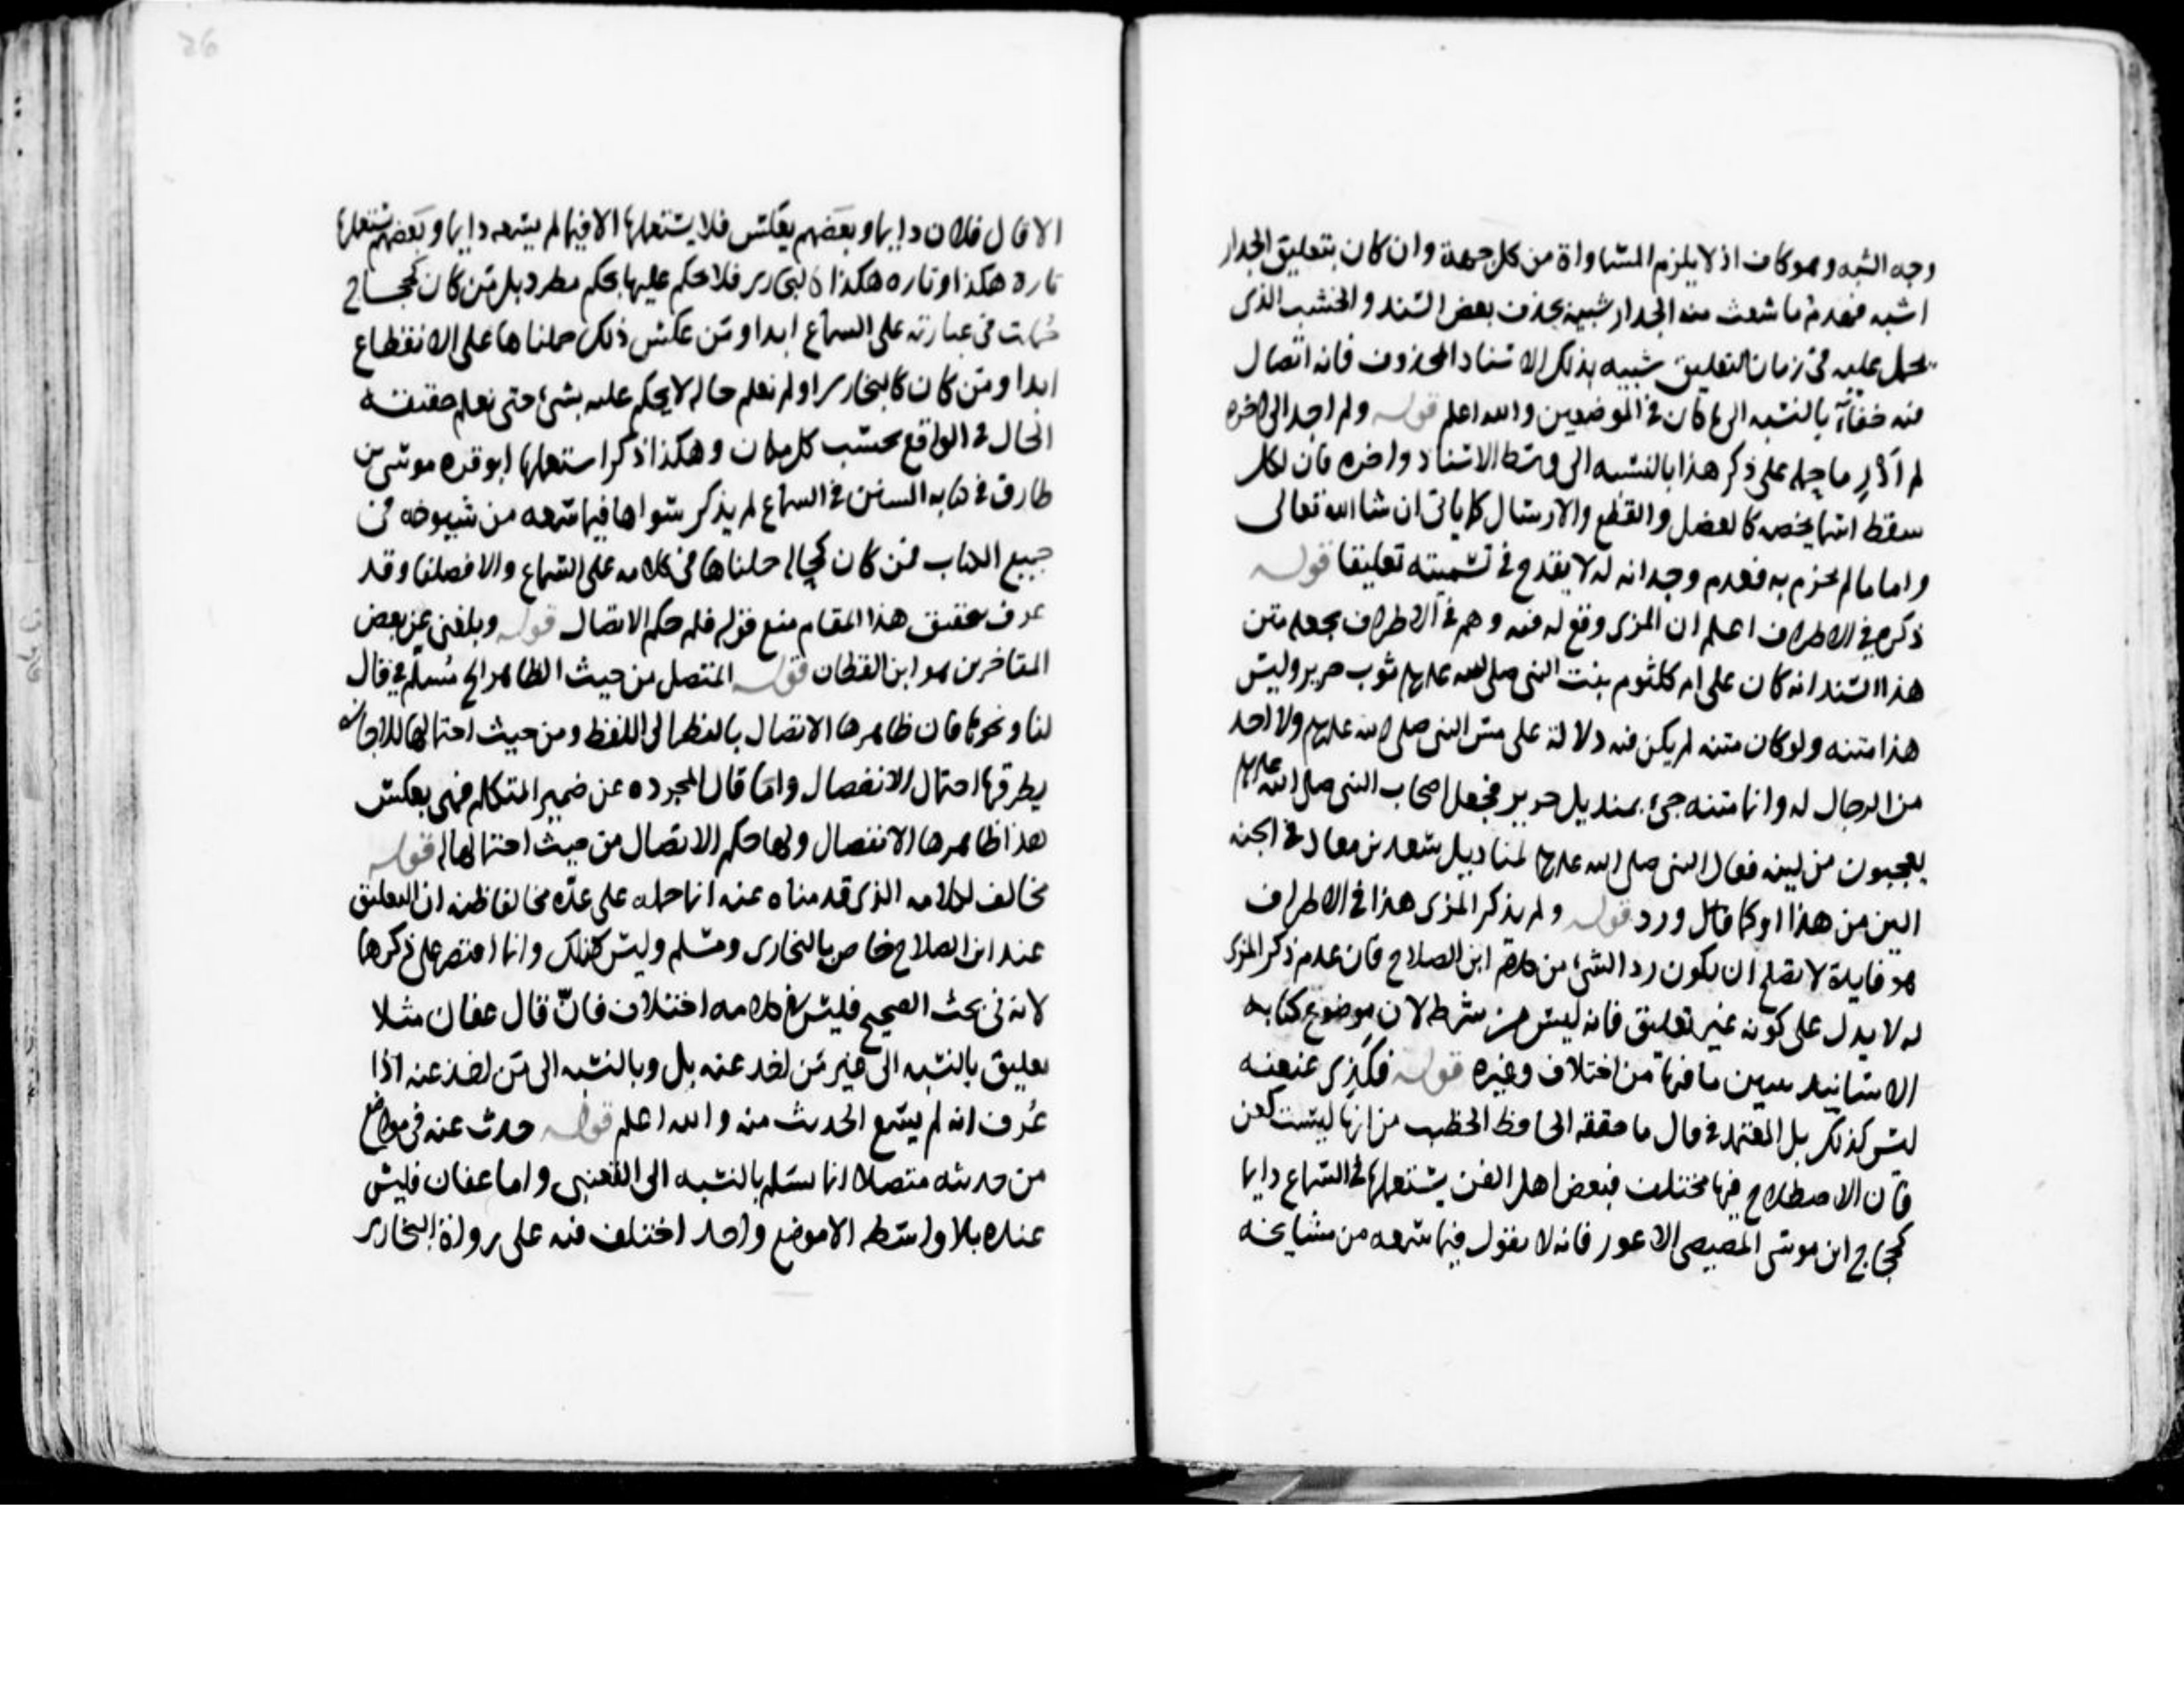 وجه الشبه وهو كاف اذ لا يلزم المساواة من كل جهة وان كان بتعليق الجدار
اشبه فعدم ما شعث منه الجدار شبيه بحذف بعض السند والخشب الذي
يحمل عليه في زمان التعليق شبيه بذلك الاسناد المحذوف فانه اتصال
فيه خفاء بالنسبه الى ما كان في الموضعين والله اعلم قوله ولم اجد الى اخره
لم أدر ما حمله على ذكر هذا بالنسبه الى وسط الاسناد واخره فان لكل
سقط اسما يخصه كالعضل والقطع والارسال كما ياتى ان شا الله تعالى
واما ما لم يجزم به فعدم وجدانه له لا يقدح في تسميته تعليقا قوله
ذكره في الاطراف اعلم ان المزى وقع له فيه وهم في الاطراف بجعله متن
هذا السند انه كان على ام كلثوم بنت النبى صلى الله عليه وسلم ثوب حرير وليس
هذا متنه ولو كان متنه لم يكن فيه دلالة على مس النبى صلى الله عليه وسلم ولا احد
من الرجال له وانما متنه جىء بمنديل حرير فجعل اصحاب النبى صلى الله عليه وسلم
يعجبون من لينه فقال النبى صلى الله عليه وسلم لمناديل سعد بن معاذ في الجنه
الين من هذا او كما قال ورد قوله ولم يذكر المزى هذا في الاطراف
هو فايدة لا تصلح ان تكون رد الشىء من كلام ابن الصلاح فان عدم ذكر المزى
له لا يدل على كونه غير تعليق فانه ليس من شرطه لان موضوع كتابه
الاسانيد يبين ما فيها من اختلاف وغيره قوله فكذى عنعنه
ليس كذلك بل المعتمد في قال ما حققه الحافظ الخطيب من انها ليست كعن
فان الاصطلاح فيها مختلف فبعض اهل الفن يستعملها في السماع دايما
كحجاج ابن موسى المصيصى الاعور فانه لا يقول فيما سمعه من مشايخه
الا قال فلان دايما وبعضهم يعكس فلا يستعملها الا فيما لم يسمعه دايما وبعضهم يستعملها
تارة هكذا وتاره هكذا كالبخارى فلا يحكم عليها بحكم مطرد بل من كان كحجاج
حملت في عبارته على السماع ابدا ومن عكس ذلك حملناها على الانقطاع
ابدا ومن كان كالبخارى او لم نعلم حاله لا يحكم عليه بشىء حتى نعلم حقيقة
الحال في الواقع بحسب كل مكان وهكذا ذكر استعملها ابو قره موسى بن
طارق في كتابه السنن في السماع لم يذكر سواها فيما سمعه من شيوخه في
جميع الكتاب فمن كان كحاله حملناها في كلامه على السماع والا فصلنا وقد
عرف بتحقيق هذا المقام منع قوله فله حكم الاتصال قوله وبلغنى عن بعض
المتاخرين هو ابن القطان قوله المتصل من حيث الظاهر الخ مُسلّم في قال
لنا ونحوها فان ظاهرها الاتصال بالنظر الى اللفظ ومن حيث احتمالها للاجازه
يطرقها احتمال الانفصال واما قال المجرده عن ضمير المتكلم فهى بعكس
هذا ظاهرها الانفصال ولها حكم الاتصال من حيث احتمالها له قوله
مخالف لكلامه الذى قدمناه عنه انما حمله على عدّه مخالفا ظنه ان التعليق
عند ابن الصلاح خاص بالبخارى ومسلم وليس كذلك وانما اقتصر على ذكرهما
لانه في بحث الصحيح فليس في كلامه اختلاف فانّ قال عفان مثلا
تعليق بالنسبه الى غير من اخذ عنه بل وبالنسبه الى من اخذ عنه اذا
عُرف انه لم يسمع الحديث منه والله اعلم قوله حدث عنه في مواضع
من حديثه متصلا انما يسلم بالنسبه الى القعنبى واما عفان فليس
عنده بلا واسطه الا موضع واحد اختلف فيه على رواة البخارى